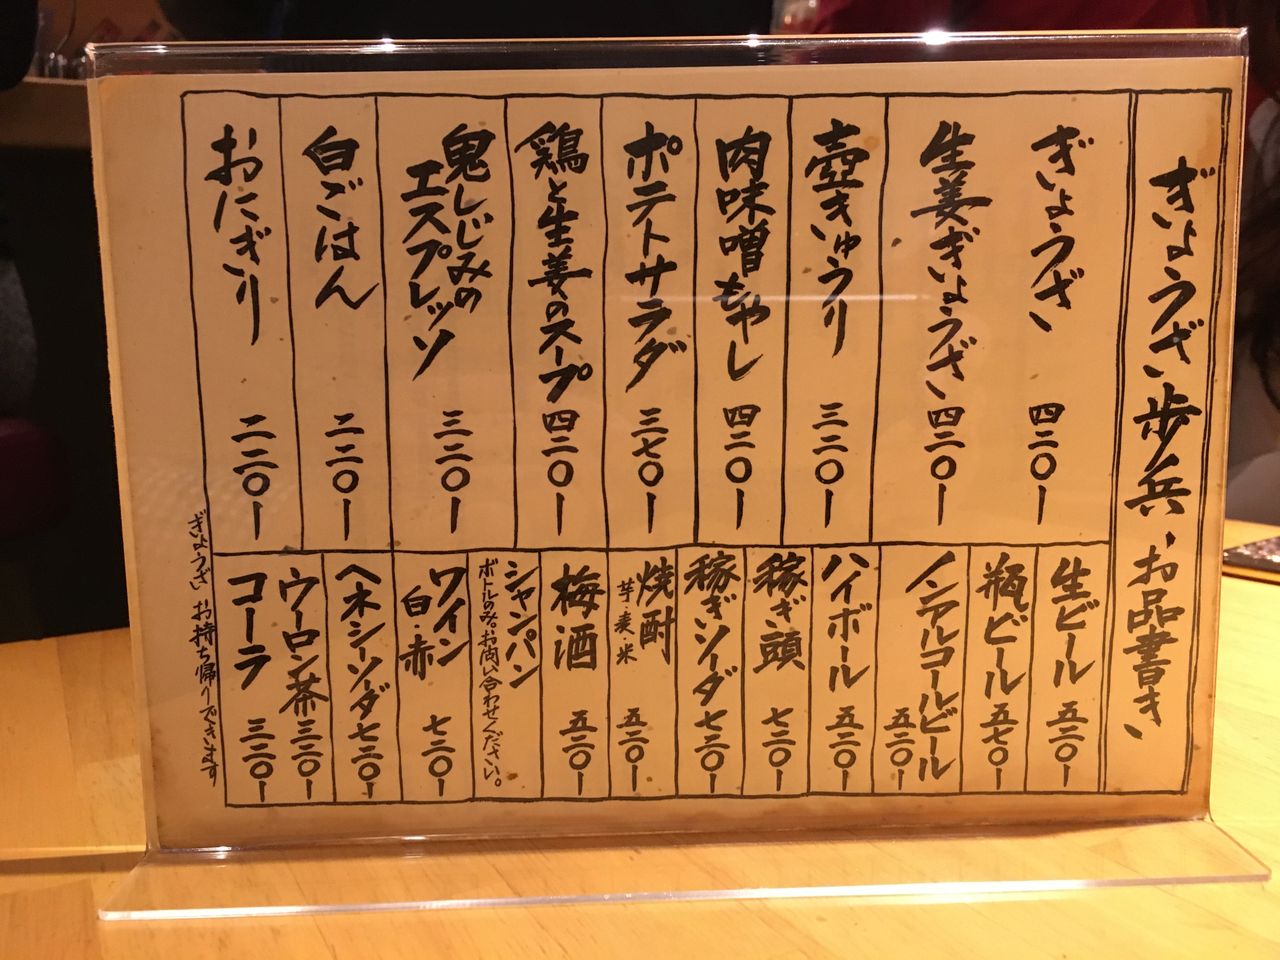 ぎょうざ歩兵、お品書き
ぎょうざ 四二〇ー
生姜ぎょうざ 四二〇ー
壺きゅうり 三二〇ー
肉味噌もやし 四二〇ー
ポテトサラダ 三七〇ー
鶏と生姜のスープ 四二〇ー
鬼しじみの
エスプレッソ 三二〇ー
白ごはん 二二〇ー
おにぎり 二二〇ー
生ビール 五二〇ー
瓶ビール 五七〇ー
ノンアルコールビール
五二〇ー
ハイボール 五二〇ー
稼ぎ頭 七二〇ー
稼ぎソーダ 七二〇ー
焼酎
芋・麦・米 五二〇ー
梅酒 五二〇ー
シャンパン
ボトルのみ。お問い合わせください。
ワイン
白・赤 七二〇ー
ヘネシーソーダ 七二〇ー
ウーロン茶 三二〇ー
コーラ 三二〇ー
ぎょうざ お持ち帰りできます